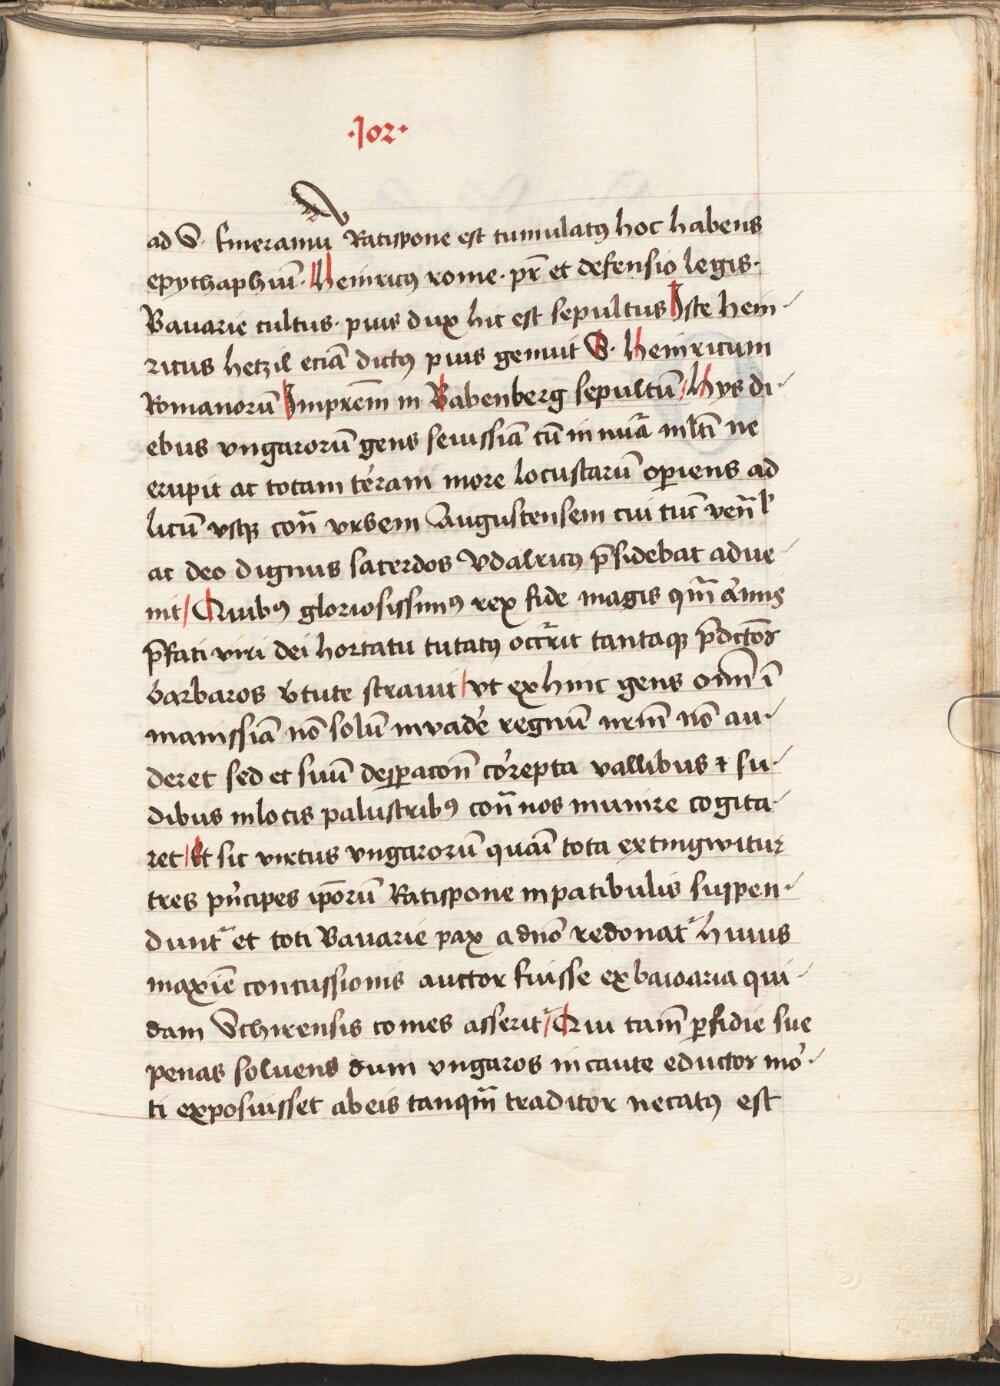 ·102·
ad S. Emeramū Ratispone est tumulatꝯ hoc habens
epythaphiū. Heinricꝯ rome. pr̄ et defensio legis.
Bauarie cultus. pius dux hic est sepultus Iste hein-
ricus hetzil eciā dictꝯ pius genuit S. Heinricum
Romanorū Imprem̄ in Babenberg sepultū / Hys di-
ebus vngarorū gens seuissiā cū in nūa mltī ne
erupit ac totam terram more locustarū operiens ad
licū vsqꝫ con̄ vrbem Augustensem cui tūc ven̄l
ac deo dignus sacerdos Vdalricꝯ p̄sidebat adue-
nit / Quibꝯ gloriosissimꝯ rex fide magis qm̄ armis
p̄fati viri dei hortatu tutatꝯ occ̄rit tantaqꝫ p̄dctōs
barbaros v̓tute strauit / vt ex hinc gens om̄ ī
manissiā nō solū invad'e regnū nr̄m nō au-
deret sed et suū desꝑacon̄ cor̓repta vallibus ⁊ su-
dibus in locis palustribꝯ con̄ nos munire cogita-
ret / Et sic virtus vngarorū quāi tota extingwitur
tres pn̓cipes ip̄orū Ratispone in patibulis suspen-
dunt᷑ et toti Bauarie pax a dnō redonat᷑ huius
maxīe concussionis auctor fuisse ex baioaria qui-
dam Schirensis comes asserit᷑ / Qui tam̄ ꝑfidie sue
penas soluens dum vngaros incaute eductos mor̓-
ti exposuisset ab eis tanqm̄ traditor necatꝯ est